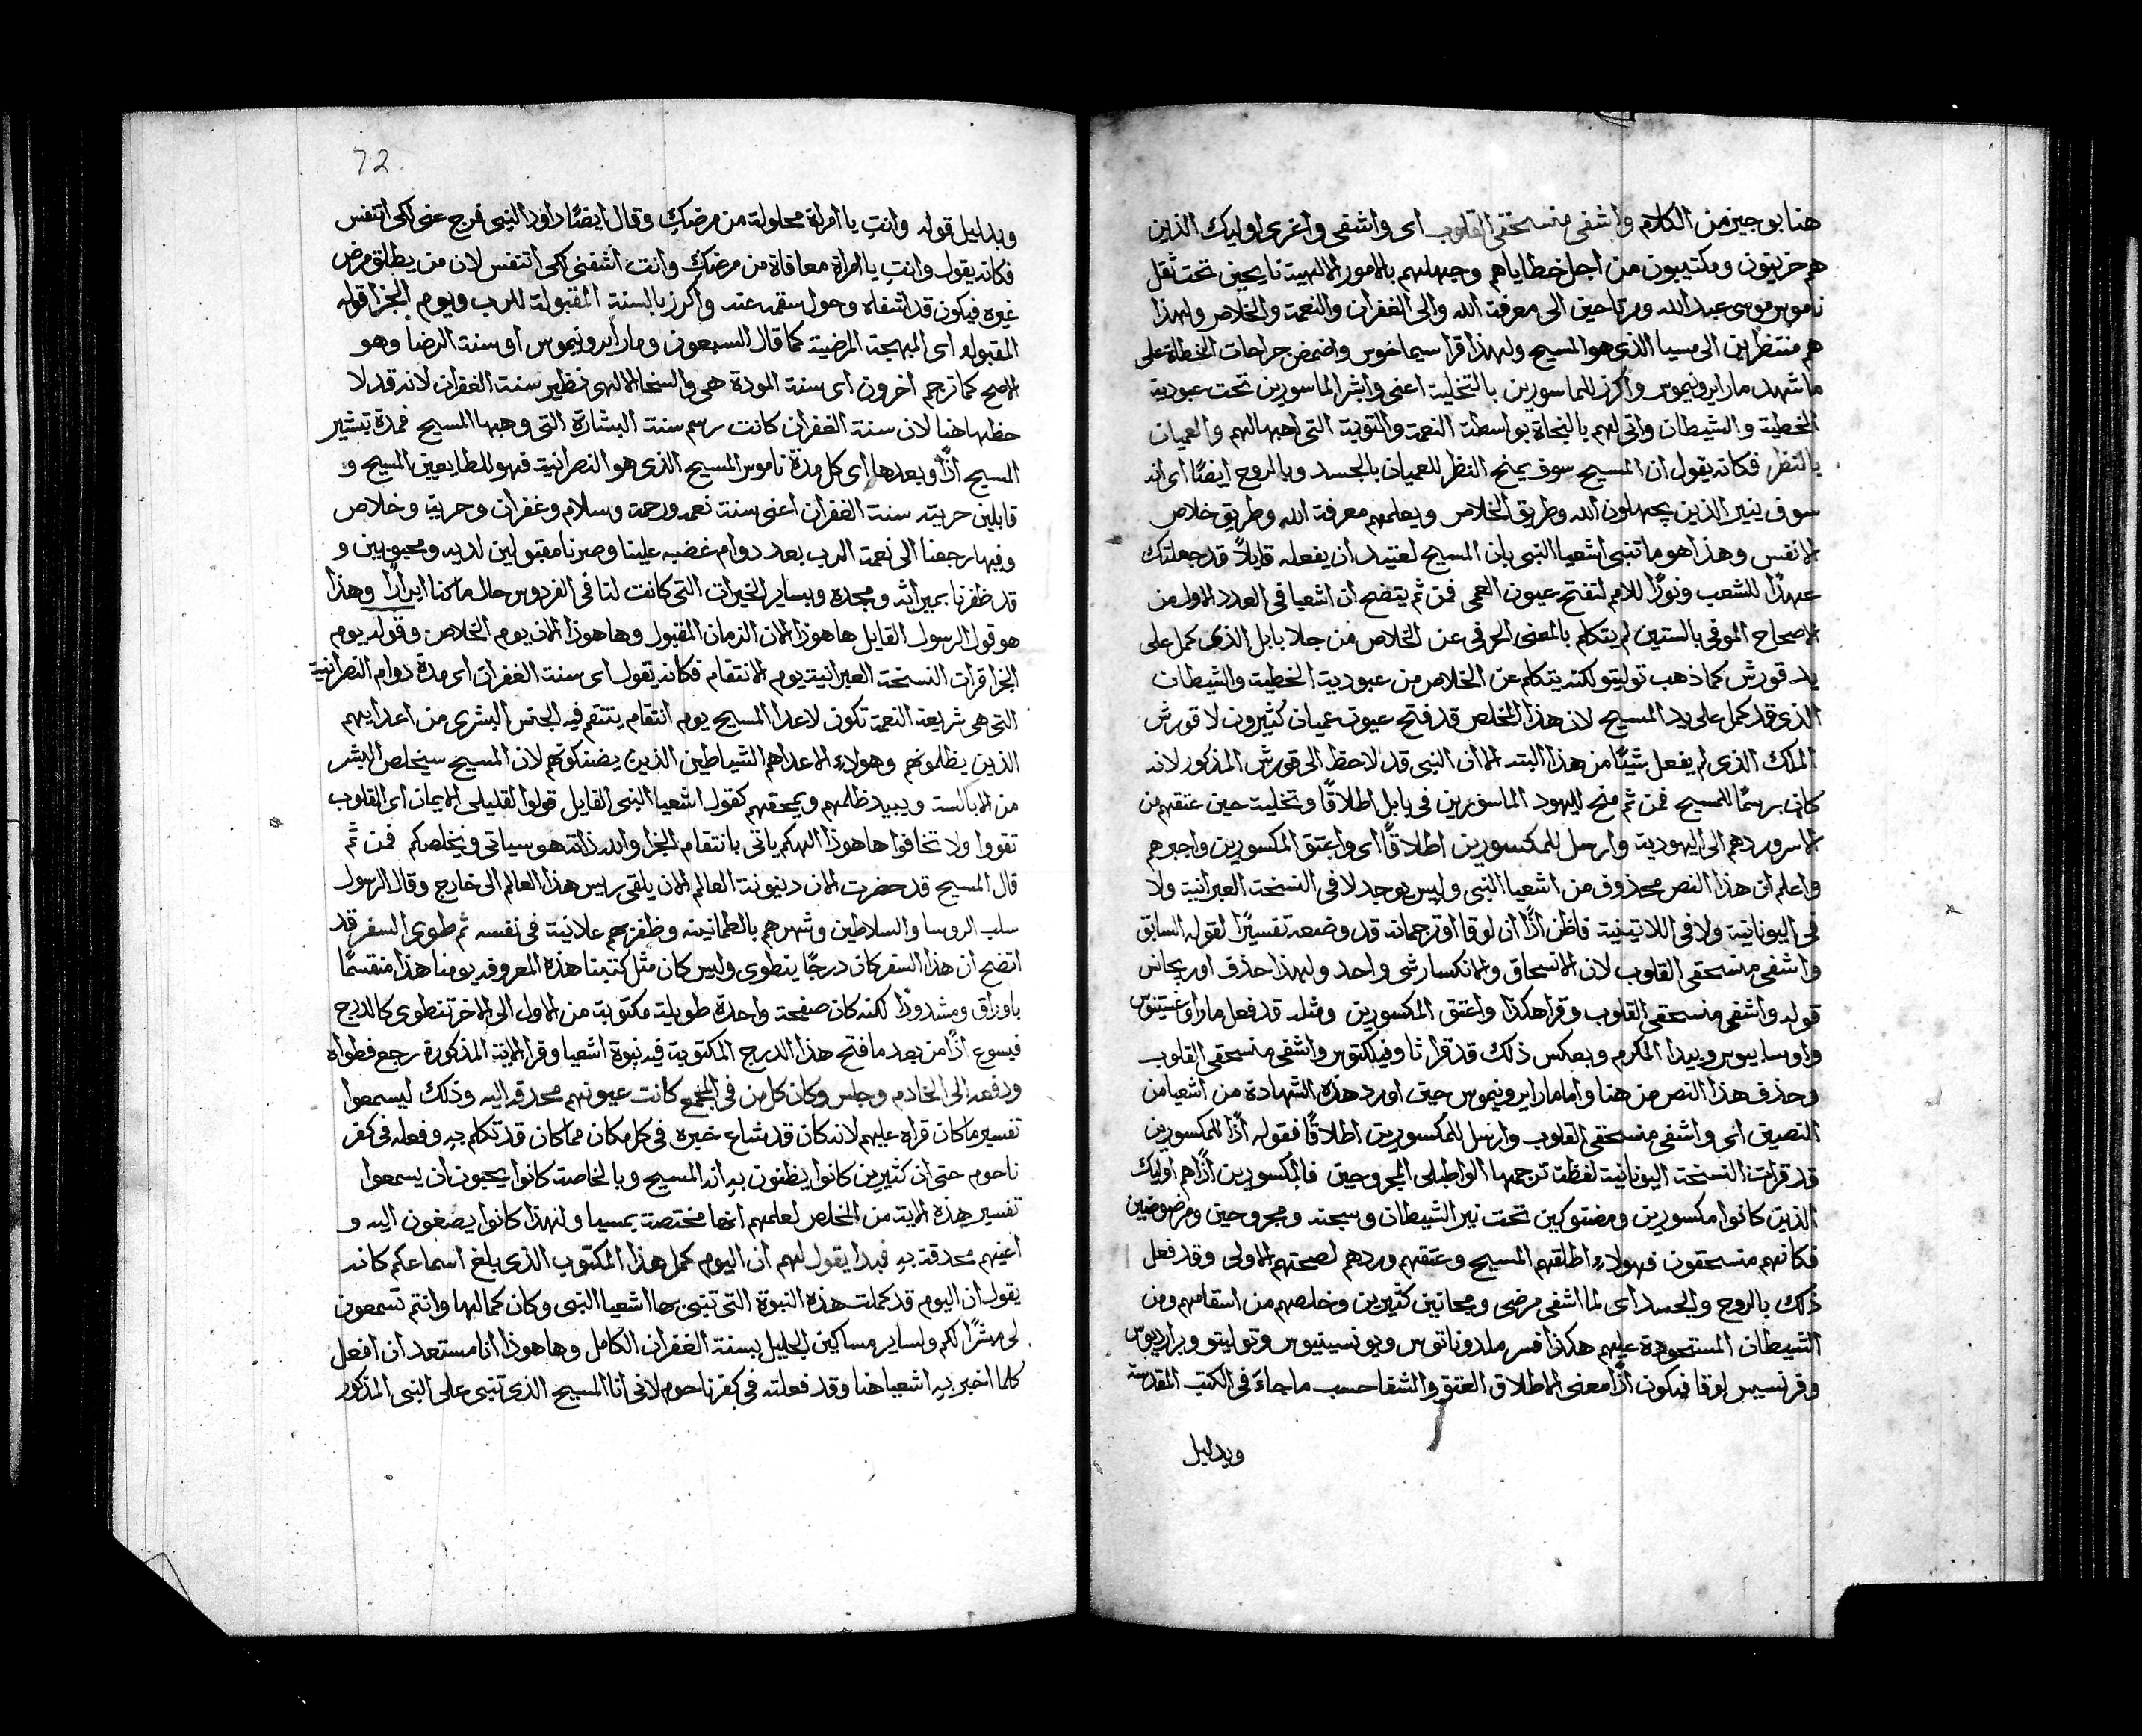 هنا بوجيز من الكلام واشفى منسحقى القلوب اى واشفى واعزى اوليك الذين
هم حزينون ومكتيبون من اجل خطاياهم وجهلهم بالامور الالهيه نايحين تحت ثقل
ناموس موسى عبد الله ومرتاحين الى معرفة الله والى الغفران والنعمة والخلاص ولهذا
هم منتظرين الى مسيا الذى هو المسيح ولهذا قرا سيماخوس واضمض جراحات الخطاة على
ما شهد مار ايرونيموس واكرز للماسورين بالتخلية اعنى وابشر الماسورين تحت عبودية
الخطية والشيطان واتى لهم بالنجاة بواسطة النعمة والتوبة التى اهبها لهم والعميان
بالنظر فكانه يقول ان المسيح سوف يمنح النظر للعميان بالجسد وبالروح ايضًا اى انه
سوف ينير الذين يجهلون الله وطريق الخلاص ويعلمهم معرفة الله وطريق خلاص
الانفس وهذا هو ما تنبى اشعيا النبى بان المسيح لعتيد ان يفعله قايلاً قد جعلتك
عهدًا للشعب ونورًا للامم لتفتح عيون العمى فمن ثم يتضح ان اشعيا فى العدد الاول من
الاصحاح الموفى بالستين لم يتكلم بالمعنى الحرفى عن الخلاص من جلا بابل الذى كمل على
يد قورش كما ذهب توليتو لكنه يتكلم عن الخلاص من عبودية الخطية والشيطان
الذى قد كمل على يد المسيح لان هذا المخلص قد فتح عيون عميان كثيرون لا قورش
الملك الذى لم يفعل شيًا من هذا البته الا ان النبى قد لاحظ الى قورش المذكور لانه
كان برسمًا للمسيح فمن ثم منح لليهود الماسورين فى بابل اطلاقًا وتخلية حين عتقهم من
الاسر وردهم الى اليهودية وارسل للمكسورين اطلاقًا اى واعتق المكسورين واجبرهم
واعلم ان هذا النص محذوف من اشعيا النبى وليس يوجد لا فى النسخة العبرانية ولا
فى اليونانية ولا فى اللاتينية فاظن اذًا ان لوقا او ترجمانه قد وضعه تفسيرًا لقوله السابق
واشفى منسحقى القلوب لان الانسحاق والانكسار شى واحد ولهذا حذف اوريجانس
قوله واشفى منسحقى القلوب وقرا هكذا واعتق المكسورين ومثله قد فعل مار اوغستينوس
واوسابيوس وبيدا المكرم وبعكس ذلك قد قرا ثاوفيلكتوس واشفى منسحقى القلوب
وحذف هذا النص من هنا واما مار ايرونيموس حين اورد هذه الشهادة من اشعيا من
النصين اى واشفى منسحقى القلوب وارسل للمكسورين اطلاقًا فقوله اذًا للمكسورين
قد قرات النسخة اليونانية لفظة ترجمها الواطبلى المجروحين فالمكسورين اذًا هم اوليك
الذين كانوا مكسورين ومضنوكين تحت نير الشيطان وسجنه ومجروحين ومرضوضين
فكانهم منسحقون فهولاء اطلقهم المسيح وعتقهم وردهم لصحتهم الاولى وقد فعل
ذلك بالروح والجسد اى لما اشفى مرضى ومجانين كثيرين وخلصهم من اسقامهم ومن
الشيطان المستحوذة عليهم هكذا فسر ملدوناتوس ويونسينيوس وتوليتو وبراديوس
وفرنسيس لوقا فيكون اذًا معنى الاطلاق العتق والشفا حسب ما جاء فى الكتب المقدسة
وبدليل
72
وبدليل قوله وانتِ يا امراة محلولة من مرضكِ وقال ايضًا داود النبى فرج عنى لكى اتنفس
فكانه يقول وانتِ يا امراة معافاة من مرضكِ وانت اشفنى لكى اتنفس لان من يطلق مرض
غيره فيكون قد اشفاه وحول سقمه عنه واكرز بالسنة المقبولة للرب ويوم الجزا قوله
المقبوله اى المبهجة المرضية كما قال السبعون ومار ايرونيموس او سنة الرضا وهو
الاصح كما ترجم اخرون اى سنة المودة هى والسخا الالهى نظير سنة الغفران لانه قد لا
حظها هنا لان سنة الغفران كانت رسم سنة البشارة التى وهبها المسيح فمدة تبشير
المسيح اذًا وبعدها اى كل مدة ناموس المسيح الذى هو النصرانية فهو للطايعين المسيح و
قابلين حريته سنة الغفران اعنى سنة نعمه ورحمة وسلام وغفران وحرية وخلاص
وفيها رجعنا الى نعمة الرب بعد دوام غضبه علينا وصرنا مقبولين لديه ومحبوبين و
قد ظفرنا بميراثه ومجده وبساير الخيرات التى كانت لنا فى الفردوس حال ما كنا ابرارًا وهذا
هو قول الرسول القايل ها هوذا الان الزمان المقبول وها هوذا الان يوم الخلاص وقوله يوم
الجزا قرات النسخة العبرانية يوم الانتقام فكانه يقول اى سنة الغفران اى مدة دوام النصرانية
التى هى شريعة النعمة تكون لاعدا المسيح يوم انتقام ينتقم فيه الجنس البشرى من اعدايهم
الذين يظلمونهم وهولاء الاعداهم الشياطين الذين يضنكونهم لان المسيح سيخلص البشر
من الابالسة ويبيد ظالمهم ويمحقهم كقول اشعيا النبى القايل قولوا لقليلى الايمان اى القلوب
تقووا ولا تخافوا ها هوذا الهكم ياتى بانتقام الجزا والله ذاته هو سياتى ويخلصكم فمن ثم
قال المسيح قد حضرت الان دينونة العالم الان يلقى ريس هذا العالم الى خارج وقال الرسول
سلب الروسا والسلاطين وشهرهم بالطمانينه وظفر بهم علانية فى نفسه ثم طوى السفر قد
اتضح ان هذا السفر كان درجًا ينطوى وليس كان مثل كتبنا هذه المعروفه يومنا هذا منقسمًا
باوراق ومشدودًا لكنه كان صفيحة واحدة طويلة مكتوبة من الاول الى الاخر تنطوى كالدرج
فيسوع اذًا من بعد ما فتح هذا الدرج المكتوبة فيه نبوة اشعيا وقرا الاية المذكورة رجع فطواه
ودفعه الى الخادم وجلس وكان كل من فى المجمع كانت عيونهم محدقه اليه وذلك ليسمعوا
تفسير ما كان قراه عليهم لانه كان قد شاع خبره فى كل مكان مما كان قد تكلم به وفعله فى كفر
ناحوم حتى ان كثيرين كانوا يظنون به انه المسيح وبالخاصة كانوا يحبون ان يسمعوا
تفسير هذه الاية من المخلص لعلمهم انها مختصة بمسيا ولهذا كانوا يصغون اليه و
اعينهم محدقة به فبدا يقول لهم ان اليوم كمل هذا المكتوب الذى بلغ اسماعكم كانه
يقول ان اليوم قد كملت هذه النبوة التى تنبى بها اشعيا النبى وكان كمالها وانتم تسمعون
لى مبشرًا لكم ولساير مساكين الجليل بسنة الغفران الكامل وها هوذا انا مستعد ان افعل
كلما اخبر به اشعيا هنا وقد فعلته فى كفرناحوم لانى انا المسيح الذى تنبى على النبى المذكور